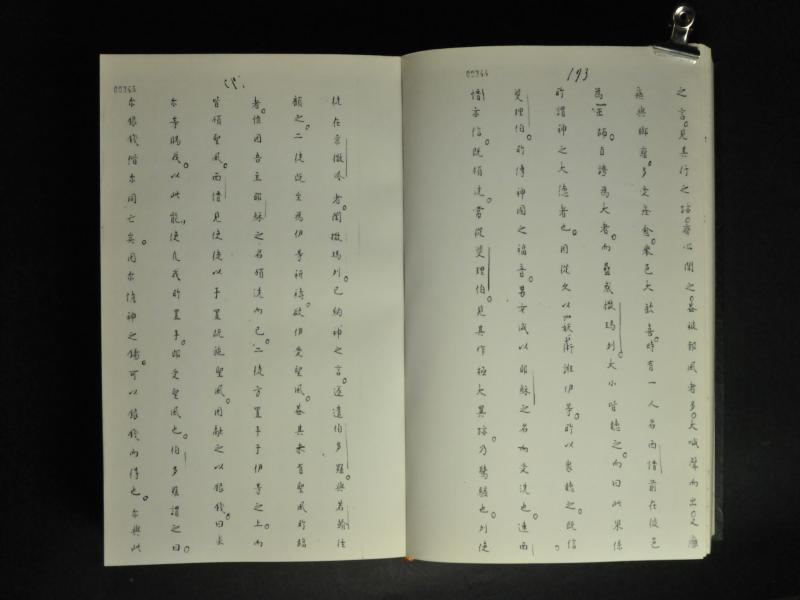 00366
193
之言。見其行之跡。齊心聞之。蓋被邪風者多。大喊聲而出。又癱
瘓與跛癈。多受痊愈。衆邑大歡喜。時有一人名西惜前在彼邑
為一巫師。自誇為大者。而蠱惑撒瑪列大小皆聽之。而曰此果係
所謂神之大德者也。因從久以妖術誑伊等所以衆聽之。既信
斐理伯。所傳神國之福音。男女咸以耶穌之名而受洗也。連西
惜亦信。既領洗。常從斐理伯。見其作極大異跡。乃驚駭也。列使
00365
徒在京撒冷者。聞撒瑪列已納神之言。遂遣伯多羅與若翰往
顧之。二徒既至為伊等祈禱。欲伊受聖風。蓋其未有聖風所臨
者。惟因吾主耶穌之名領洗而已。二徒方置手于伊等之上。而
皆領聖風。西惜見使徒以手置既施聖風。因獻之以銀錢。曰求
尔等賜我。以此能使凡我所置手。即受聖風也。伯多羅謂之曰
尔銀錢偕尔同亡矣。因尔僥神之錫。可以銀錢而得也。尔與此